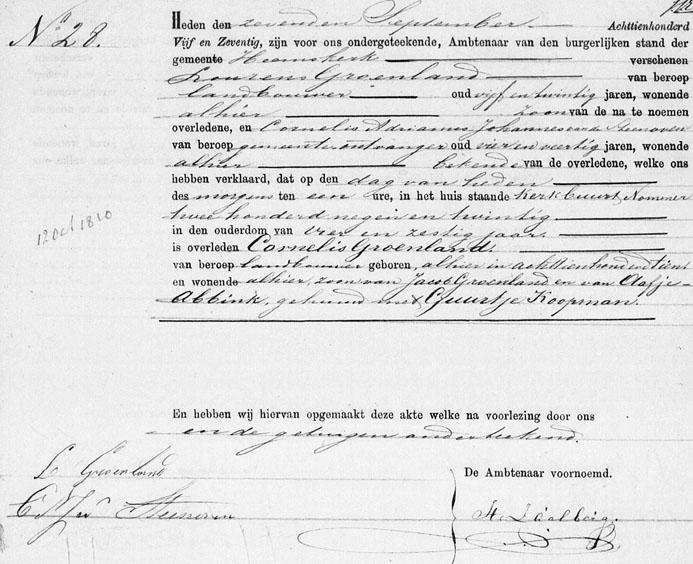 No 28.
Heden den zevenden September Achttienhonderd
Vijf en Zeventig, zijn voor ons ondergeteekende, Ambtenaar van den burgerlijken stand der
gemeente Heemskerk verschenen
Lourens Groenland van beroep
landbouwer oud vijf en twintig jaren, wonende
alhier zoon van de na te noemen
overledene, en Cornelis Adrianus Johannes van Steenoven
van beroep gemeente ontvanger oud vier en veertig jaren, wonende
alhier bekende van de overledene, welke ons
hebben verklaard, dat op den dag van heden
des morgens ten een ure, in het huis staande Kerkbuurt Nommer
twee honderd negen en twintig
in den ouderdom van vier en zestig jaar
is overleden Cornelis Groenland.
van beroep landbouwer geboren, alhier in achttienhonderd tien
en wonende alhier, zoon van Jacob Groenland en van Aafje
Abbink, gehuwd met Guurtje Koopman.
12 Oct 1810
En hebben wij hiervan opgemaakt deze akte welke na voorlezing door ons
en de getuigen onderteekend.
L Groenland
De Ambtenaar voornoemd.
Steenoven